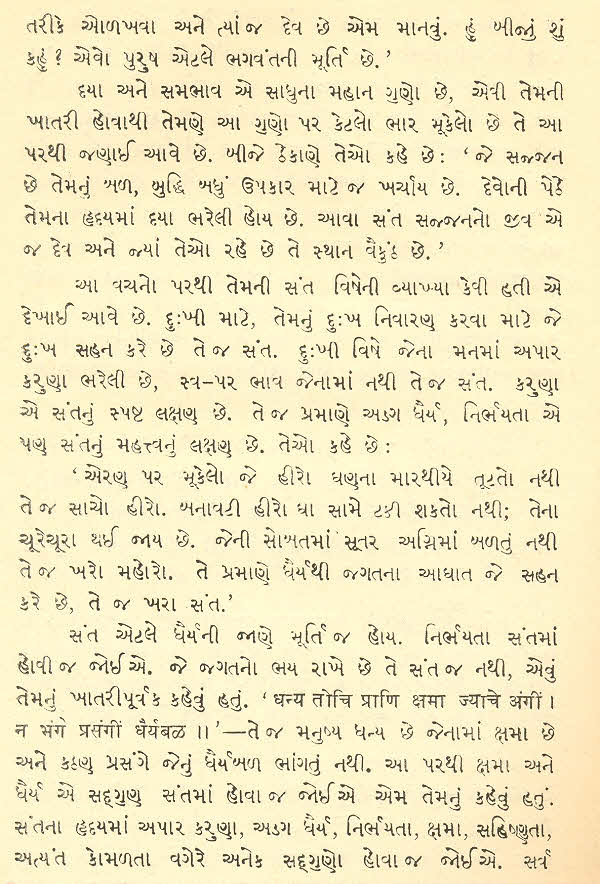 તરીકે ઓળખવા અને ત્યાં જ દેવ છે એમ માનવું. હું બીજું શું
કહું ? એવો પુરુષ એટલે ભગવંતની મૂર્તિ છે.’
દયા અને સમભાવ એ સાધુના મહાન ગુણો છે, એવી તેમની
ખાતરી હોવાથી તેમણે આ ગુણો પર કેટલો ભાર મૂકેલો છે તે આ
પરથી જણાઈ આવે છે. બીજે ઠેકાણે તેઓ કહે છે : ‘ જે સજ્જન
છે તેમનું બળ, બુદ્ધિ બધું ઉપકાર માટે જ ખર્ચાય છે. દેવોની પેઠે
તેમના હૃદયમાં દયા ભરેલી હોય છે. આવા સંત સજ્જનનો જીવ એ
જ દેવ અને જ્યાં તેઓ રહે છે તે સ્થાન વૈકુંઠ છે.’
આ વચનો પરથી તેમની સંત વિષેની વ્યાખ્યા કેવી હતી એ
દેખાઈ આવે છે. દુઃખી માટે, તેમનું દુઃખ નિવારણ કરવા માટે જે
દુઃખ સહન કરે છે તે જ સંત. દુઃખી વિષે જેના મનમાં અપાર
કરુણા ભરેલી છે, સ્વ-પર ભાવ જેનામાં નથી તે જ સંત. કરુણા
એ સંતનું સ્પષ્ટ લક્ષણ છે. તે જ પ્રમાણે અડગ ધૈર્ય, નિર્ભયતા એ
પણ સંતનું મહત્ત્વનું લક્ષણ છે. તેઓ કહે છે :
‘ એરણ પર મૂકેલો જે હીરો ઘણના મારથીયે તૂટતો નથી
તે જ સાચો હીરો. બનાવટી હીરો ઘા સામે ટકી શકતો નથી; તેના
ચૂરેચૂરા થઈ જાય છે. જેની સોબતમાં સૂતર અગ્નિમાં બળતું નથી
તે જ ખરો મહોરો. તે પ્રમાણે ધૈર્યથી જગતના આઘાત જે સહન
કરે છે, તે જ ખરા સંત.’
સંત એટલે ધૈર્યની જાણે મૂર્તિ જ હોય. નિર્ભયતા સંતમાં
હોવી જ જોઈએ. જે જગતનો ભય રાખે છે તે સંત જ નથી, એવું
તેમનું ખાતરીપૂર્વક કહેવું હતું. ‘ धन्य तोचि प्राणि क्षमा ज्याचे अंगीं ।
न भंगे प्रसंगीं धैर्यबळ ।।’—તે જ મનુષ્ય ધન્ય છે જેનામાં ક્ષમા છે
અને કઠણ પ્રસંગે જેનું ધૈર્યબળ ભાંગતું નથી. આ પરથી ક્ષમા અને
ધૈર્ય એ સદ્‌ગુણ સંતમાં હોવા જ જોઈએ એમ તેમનું કહેવું હતું.
સંતના હૃદયમાં અપાર કરુણા, અડગ ધૈર્ય, નિર્ભયતા, ક્ષમા, સહિષ્ણુતા,
અત્યંત કોમળતા વગેરે અનેક સદ્‌ગુણો હોવા જ જોઈએ. સર્વ